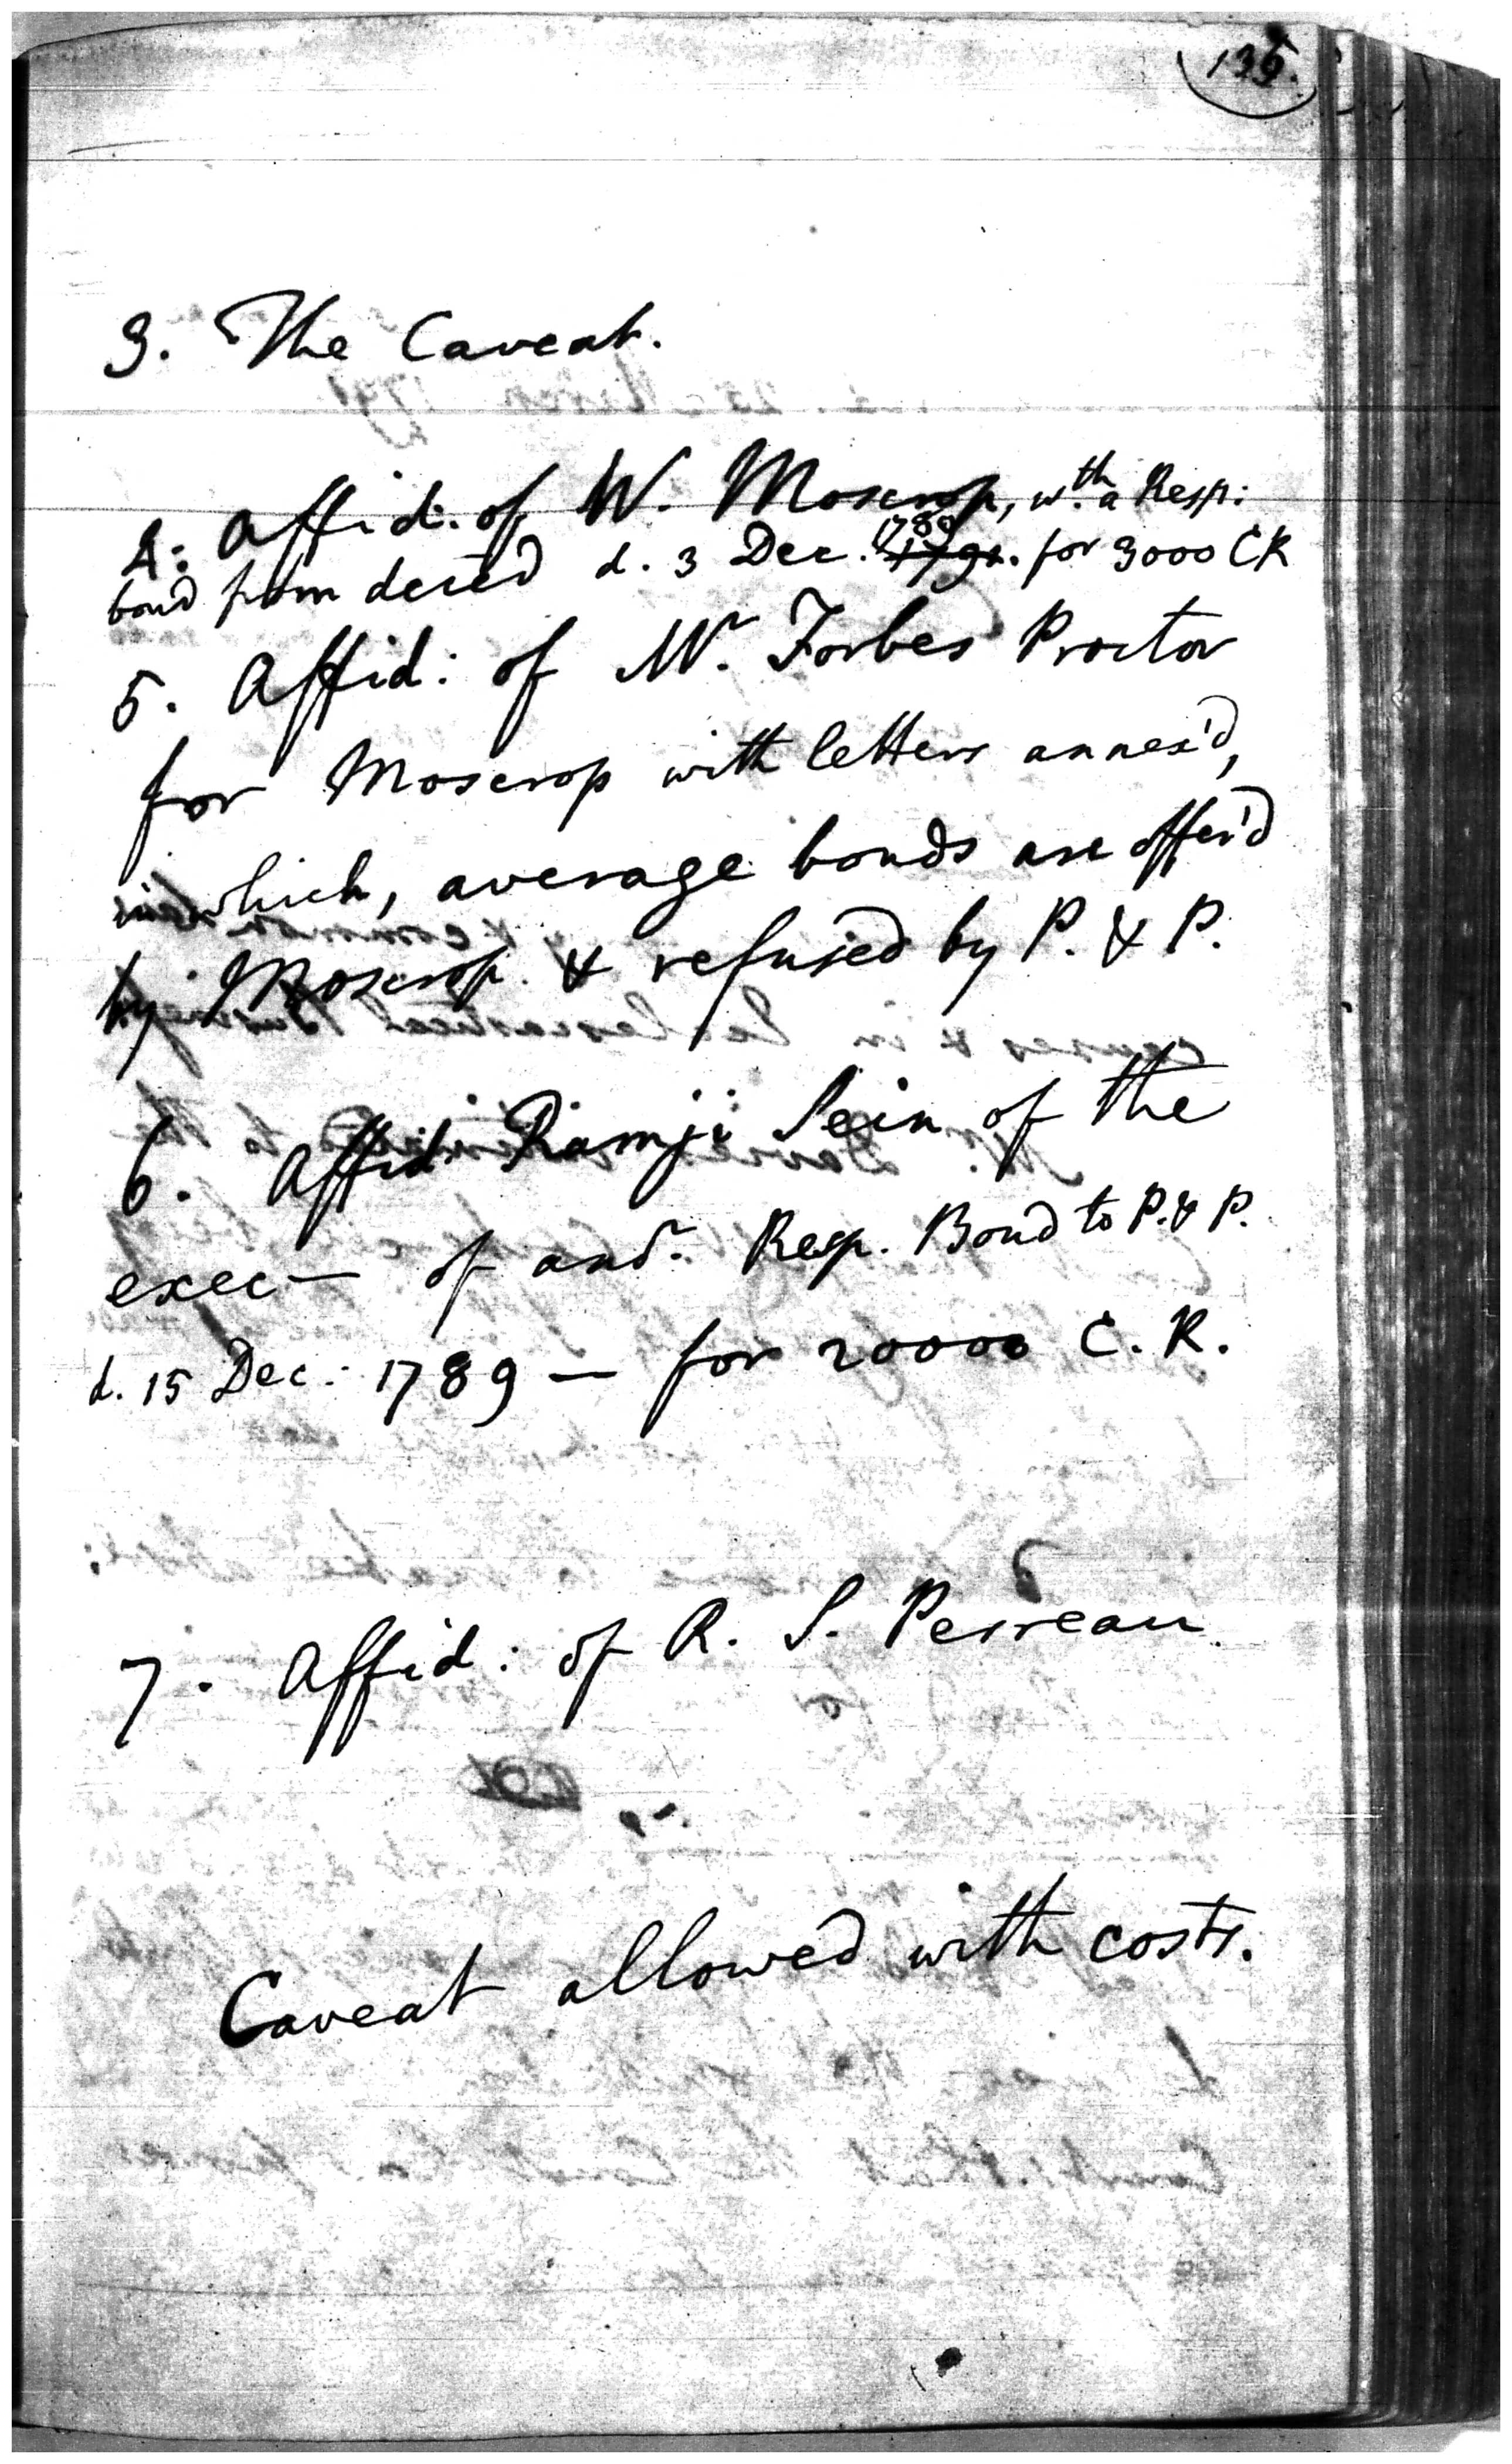 135.
3. The Caveat.
4: Affid: of W. Moscrop, wth. a Resp:
bond from deced d. 3 Dec. 1789 for 3000 CR
5. Affid: of Mr. Forbes Proctor
for Moscrop with letters annex'd,
in which, average bonds are offer'd
by Moscrop. & refused by P. & P.
6. Affid. Ramji Sein of the
exec— of anor. Resp. Bond to P. & P.
d. 15 Dec: 1789 — for 20000 C. R.
7. Affid: of R. S. Perreau.
Caveat allowed with costs.